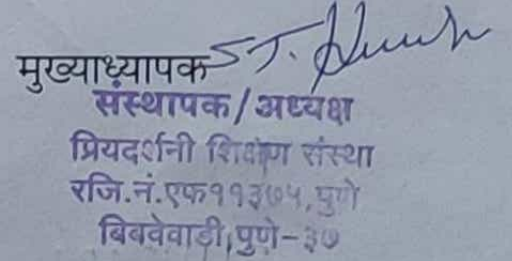 मुख्याध्यापक
संस्थापक/अध्यक्ष
प्रियदर्शनी शिक्षण संस्था
रजि.नं.एफ११३७५,पुणे
बिबवेवाडी,पुणे-३७